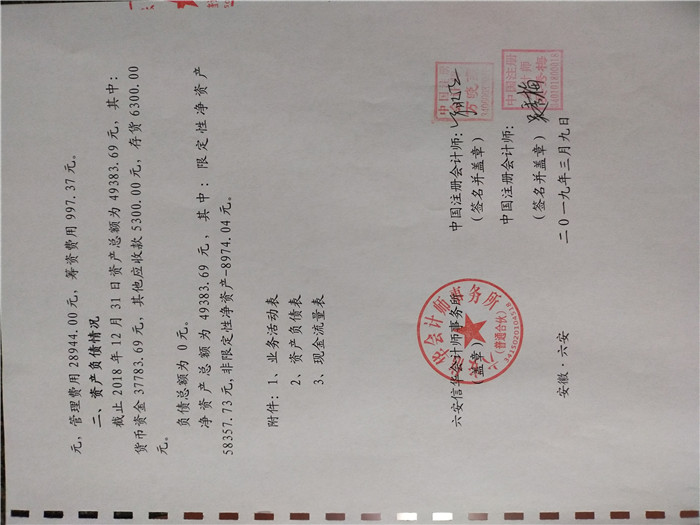 元，管理费用 28944.00 元，筹资费用 997.37 元。
二、资产负债情况
截止 2018 年 12 月 31 日资产总额为 49383.69 元，其中：
货币资金 37783.69 元，其他应收款 5300.00 元，存货 6300.00
元。
负债总额为 0 元。
净资产总额为 49383.69 元，其中：限定性净资产
58357.73 元，非限定性净资产-8974.04 元。
附件：1、业务活动表
2、资产负债表
3、现金流量表
六安信华会计师事务所
（盖章）
会计师事务所
（普通合伙）
3415020104518
安徽·六安
中国注册会计师：
（签名并盖章）
中国注册会计师：
（签名并盖章）
中国注册
二〇一九年三月九日